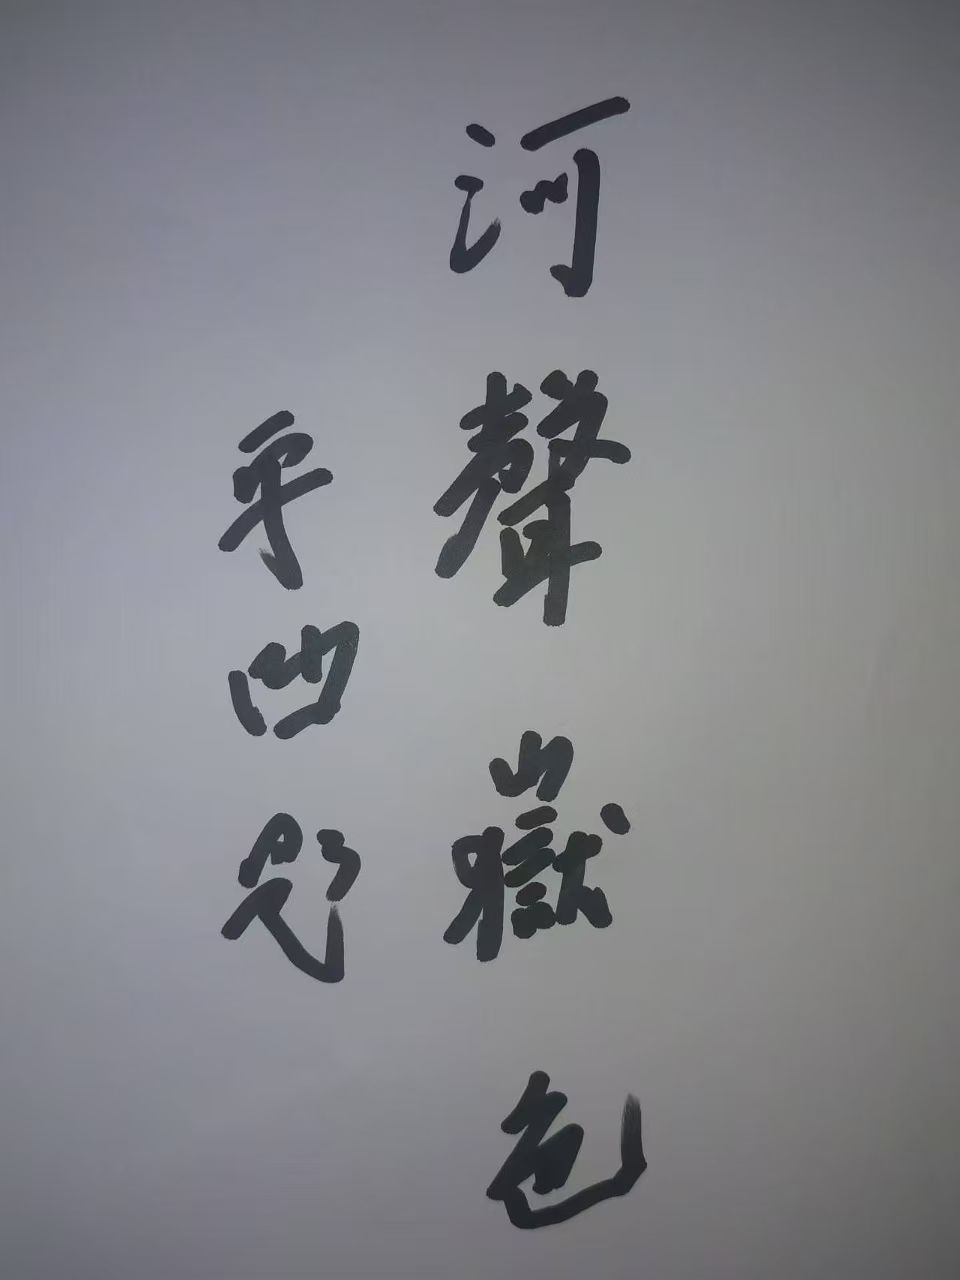 河聲嶽色
平凹題